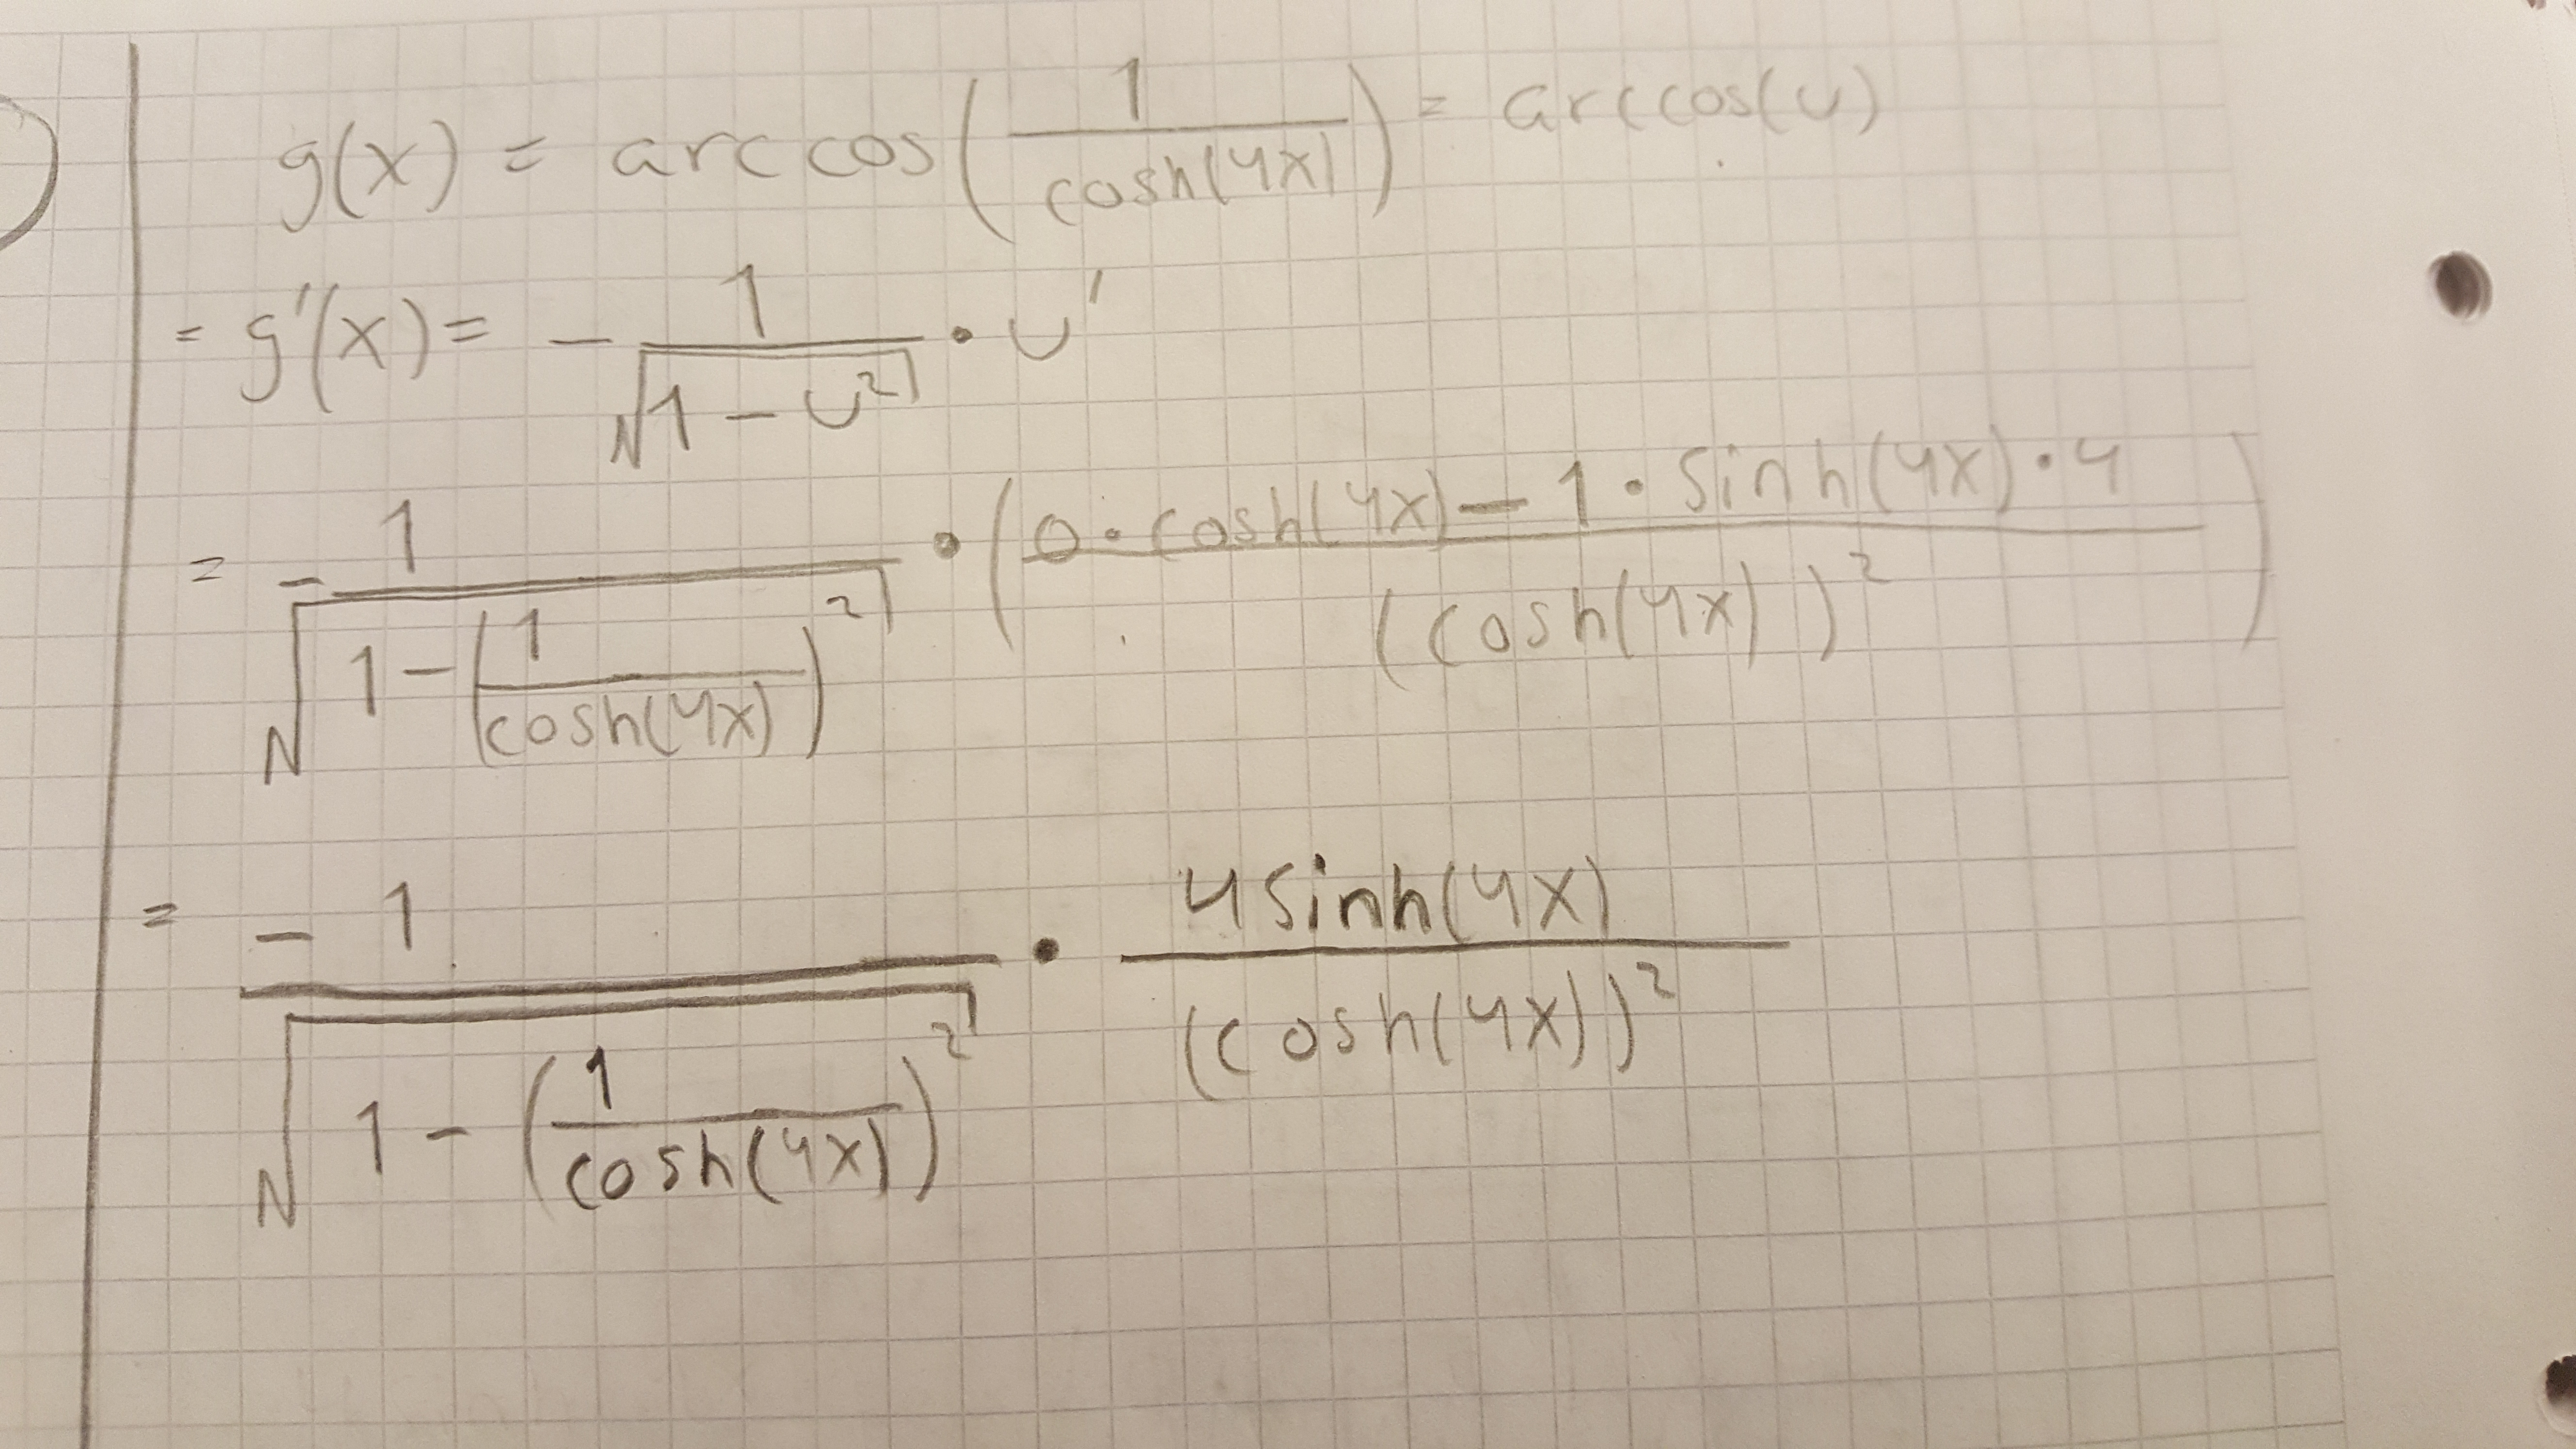 g(x) = arccos(1/cosh(4x)) = arccos(u)
= g'(x) = - 1/√(1-u²) · u'
= - 1/√(1-(1/cosh(4x))²) · ((0·cosh(4x) - 1·sinh(4x)·4)/(cosh(4x))²)
= -1/√(1-(1/cosh(4x))²) · 4sinh(4x)/(cosh(4x))²